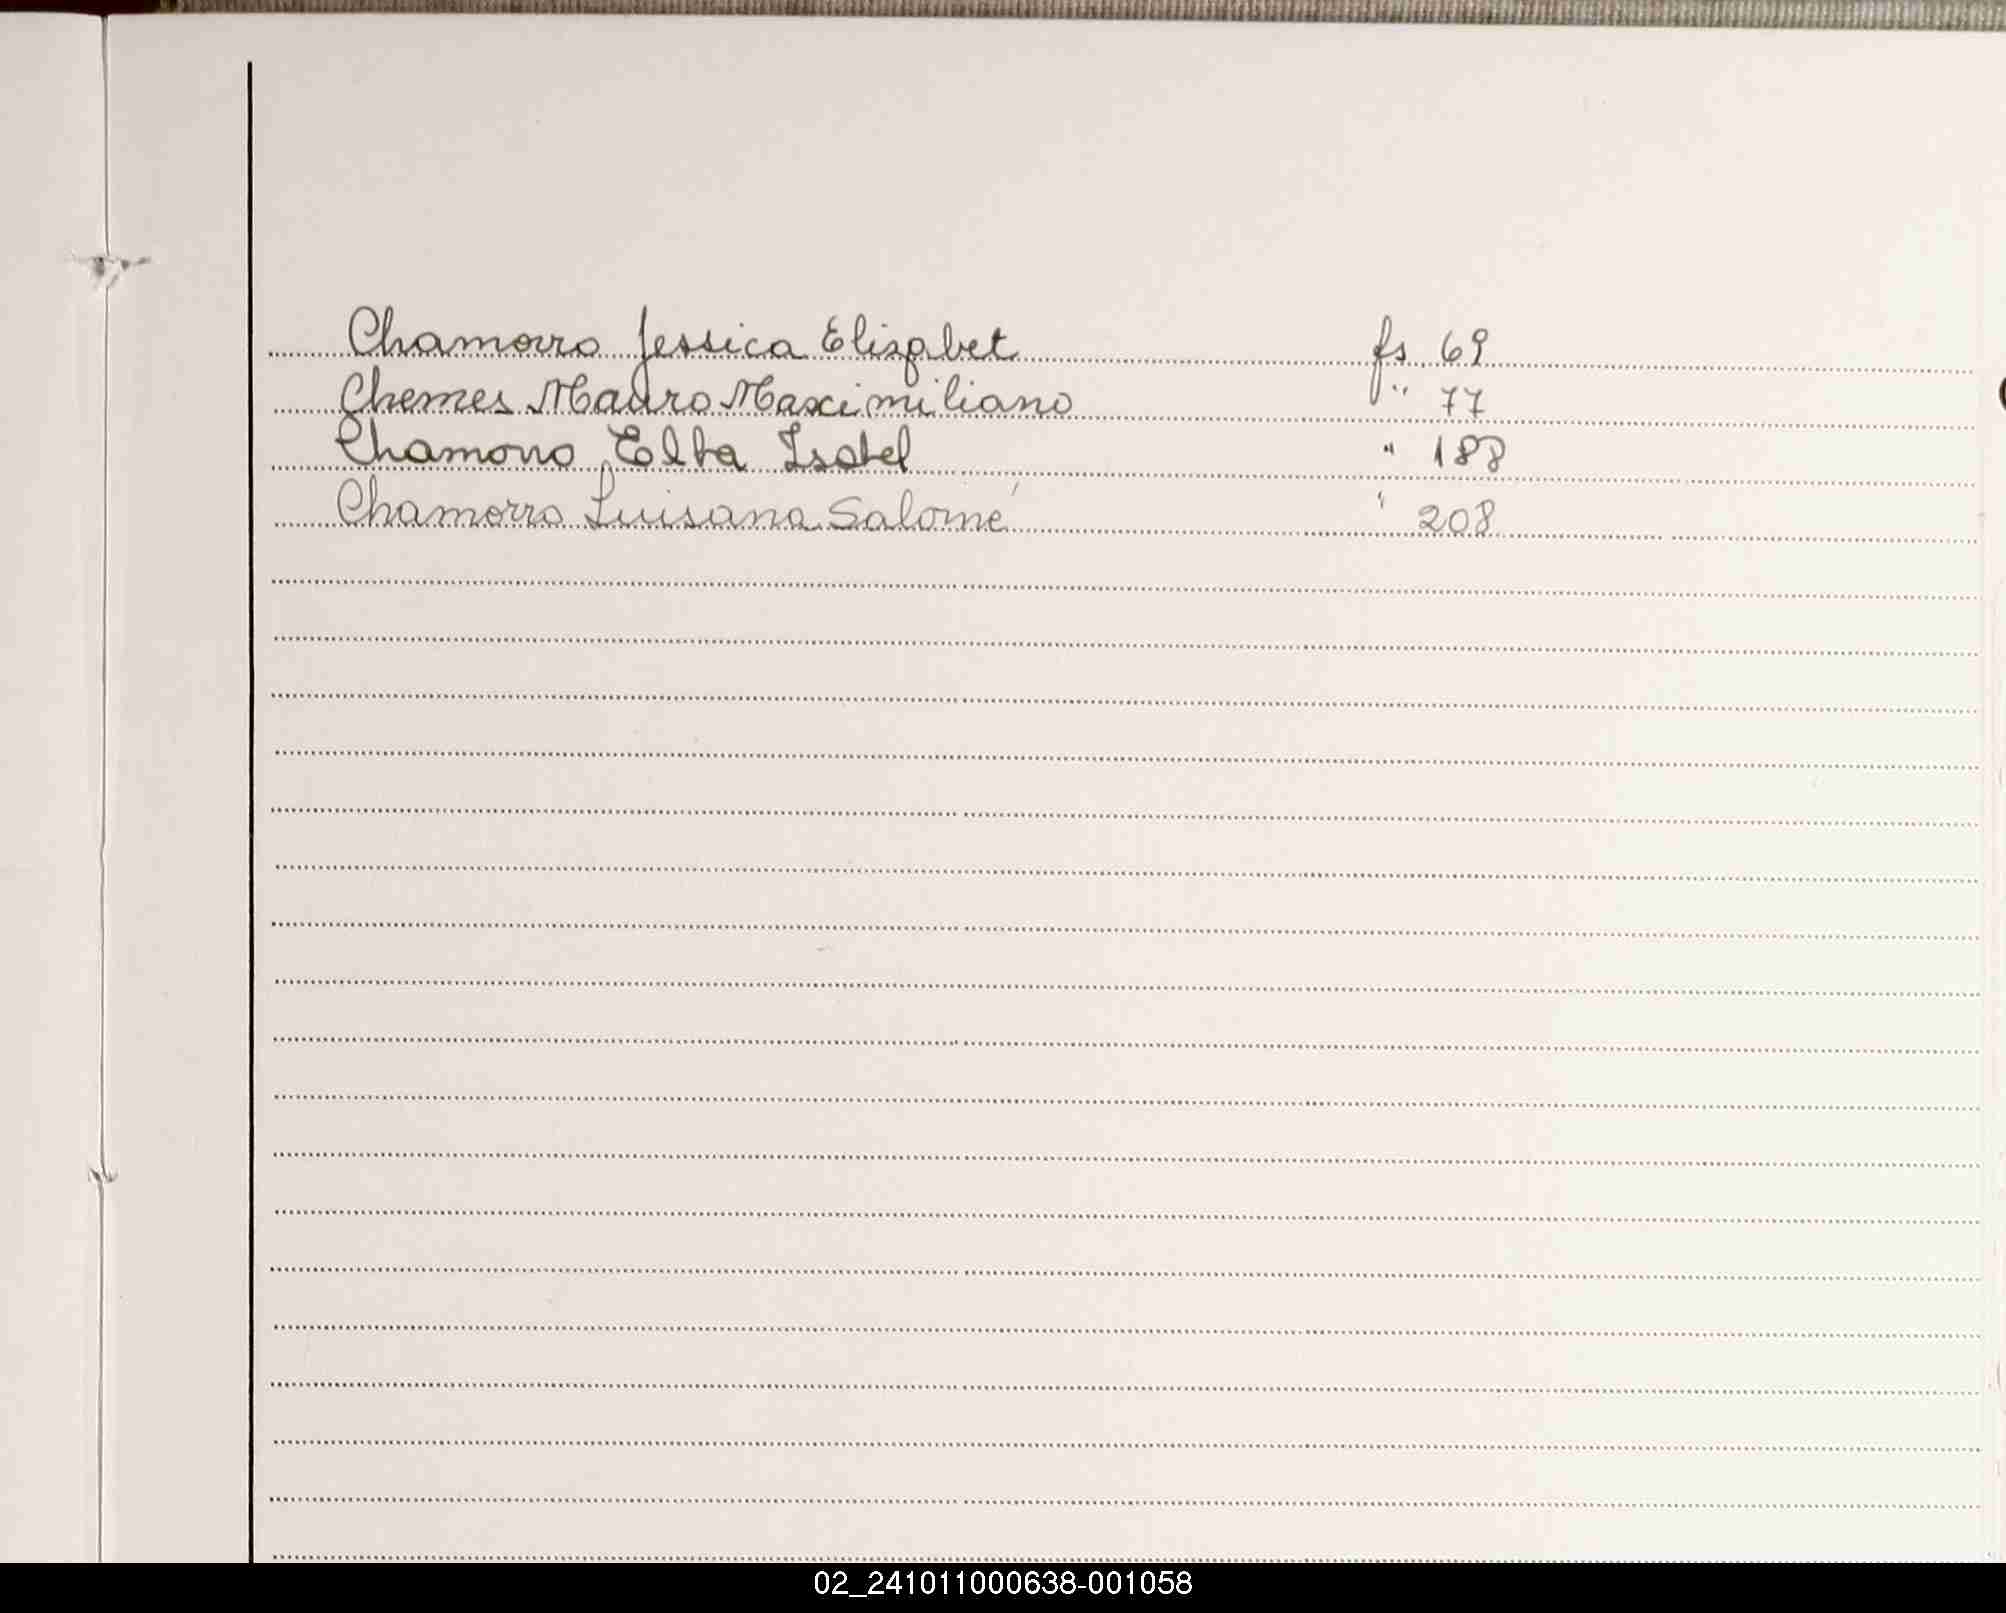 Chamorro Jessica Elizabet fs. 69
Chemes Mauro Maximiliano " 77
Chamorro Elba Isabel " 188
Chamorro Luisana Salomé " 208
02_241011000638-001058